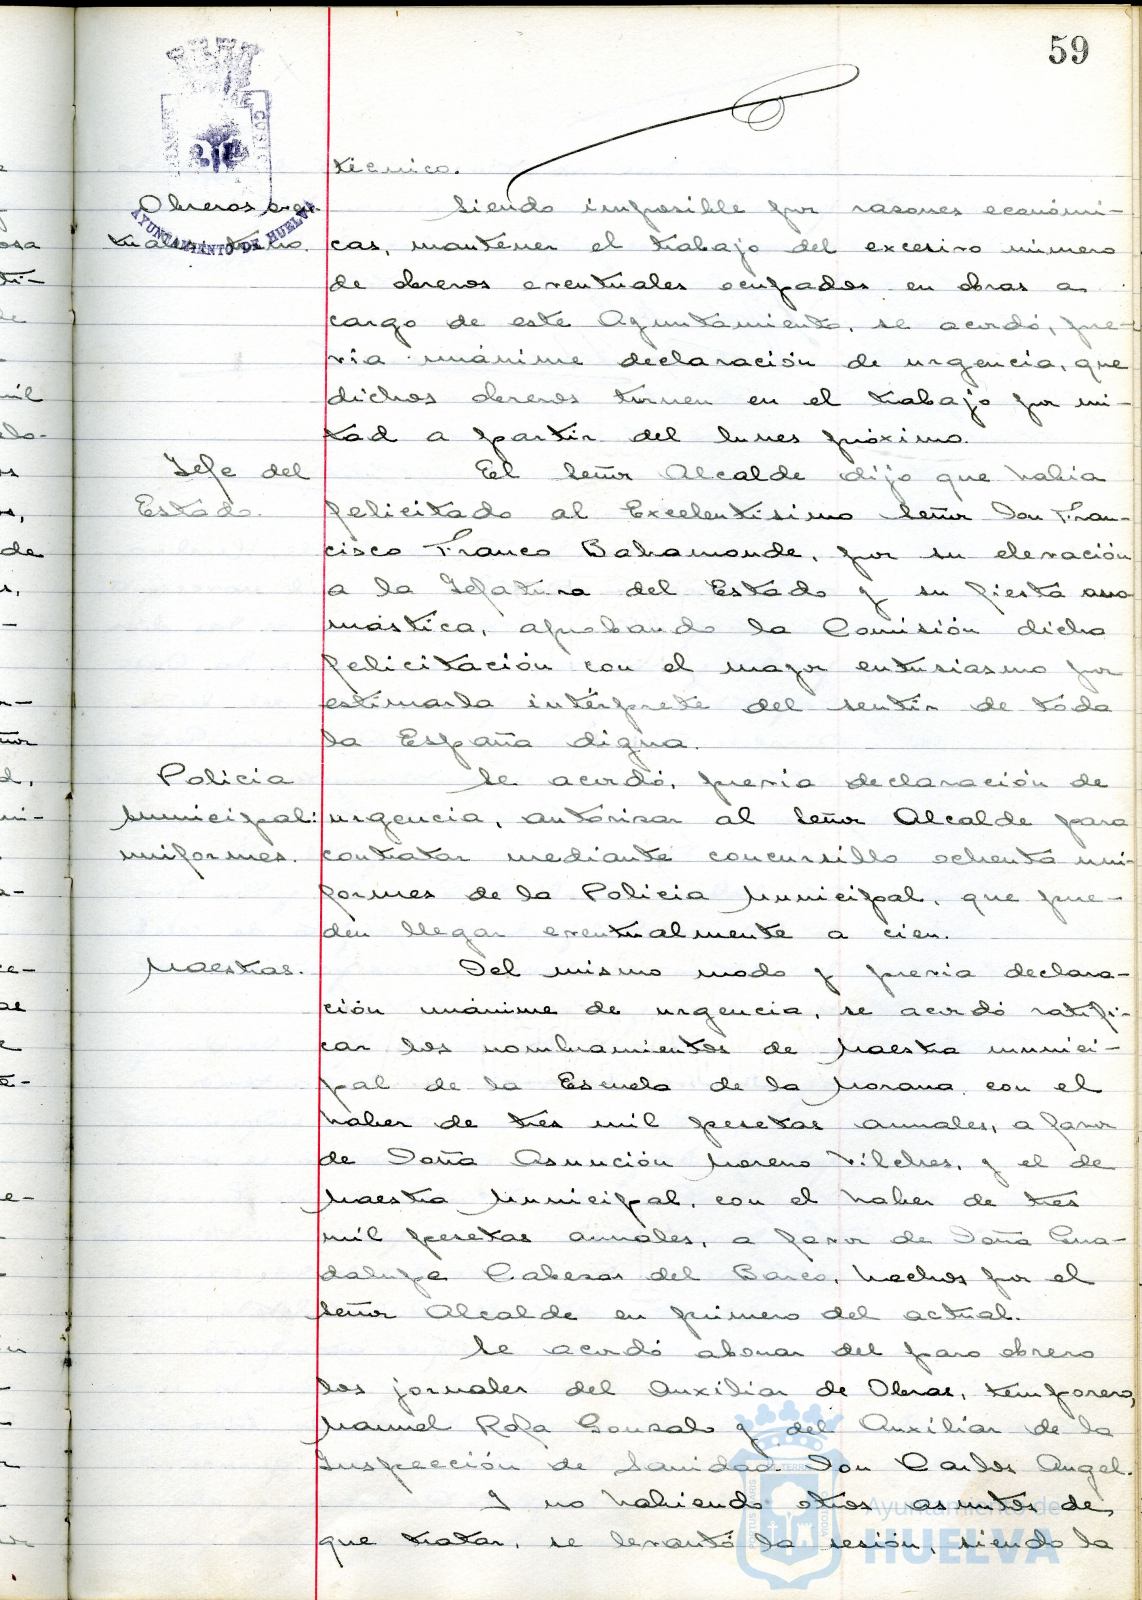 59
técnico.
Obreros even-
tuales: turno.
AYUNTAMIENTO DE HUELVA
Siendo imposible por razones económi-
cas, mantener el trabajo del excesivo número
de obreros eventuales ocupados en obras a
cargo de este Ayuntamiento, se acordó, pre-
via unánime declaración de urgencia, que
dichos obreros turnen en el trabajo por mi-
tad a partir del lunes próximo.
Jefe del
Estado.
El Señor Alcalde dijo que había
felicitado al Excelentísimo Señor Don Fran-
cisco Franco Bahamonde, por su elevación
a la Jefatura del Estado y su fiesta ono
mástica, aprobando la Comisión dicha
felicitación con el mayor entusiasmo por
estimarla intérprete del sentir de toda
la España digna.
Policia
Municipal:
uniformes.
Se acordó, previa declaración de
urgencia, autorizar al Señor Alcalde para
contratar mediante concursillo ochenta uni-
formes de la Policia Municipal, que pue-
den llegar eventualmente a cien.
Maestras.
Del mismo modo y previa declara-
ción unánime de urgencia, se acordó ratifi-
car los nombramientos de Maestra munici-
pal de la Escuela de la Morana, con el
haber de tres mil pesetas anuales, a favor
de Doña Asunción Moreno Vilches, y el de
Maestra Municipal, con el haber de tres
mil pesetas anuales, a favor de Doña Gua-
dalupe Cabezas del Barco, hechos por el
Señor Alcalde en primero del actual.
Se acordó abonar del paro obrero
los jornales del Auxiliar de Obras, temporero,
Manuel Rofa Gonzalo y del Auxiliar de la
Inspección de Sanidad Don Carlos Angel.
Y no habiendo otros asuntos de
que tratar, se levantó la sesión, siendo la
Ayuntamiento de
HUELVA